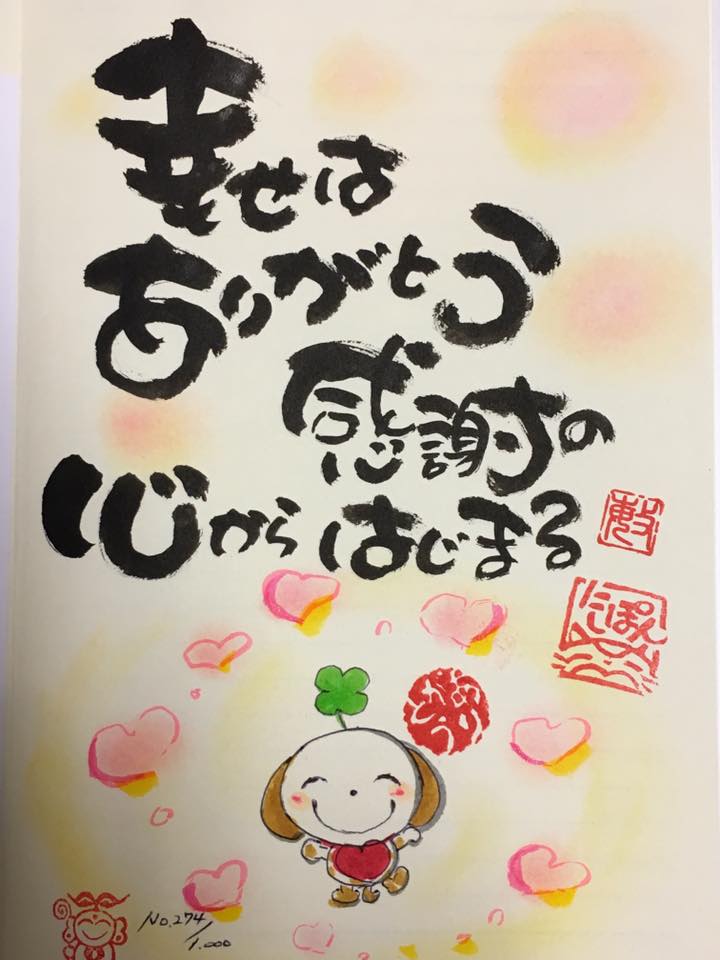 幸せは
ありがとう
感謝の
心からはじまる
にっぽん
No.274/1.000